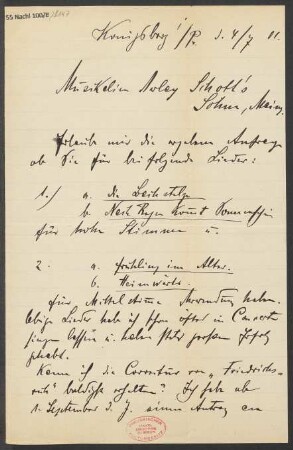 55 Nachl 100/B
Königsberg i/P. d. 4/7 11.
Musikalien Verlag Schott's
Söhne, Mainz
Erlaube mir die ergebene Anfrage
ob Sie für beifolgende Lieder:
1.) a. die Bachstelze
b. Nach Regen kommt Sonnenschein
für hohe Stimme u.
2. a. Frühling im Alter.
b. Heimwärts.
für Mittelstimme Verwendung haben.
Obige Lieder habe ich schon öfter in Concerten
singen lassen u. haben stets großen Erfolg
gehabt.
Kann ich die Correctur von "Friedrichs-
" baldigst erhalten? Ich habe ab
1. September d. J. einen Antrag